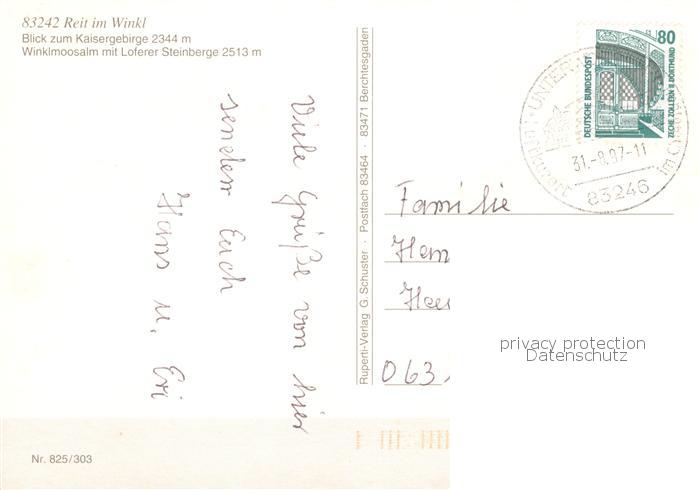 83242 Reit im Winkl
Blick zum Kaisergebirge 2344 m
Winklmoosalm mit Loferer Steinberge 2513 m
Viele Grüße von hier
senden Euch
Hans u. Evi
Ruperti-Verlag G. Schuster · Postfach 83464 · 83471 Berchtesgaden
80
DEUTSCHE BUNDESPOST
ZECHE ZOLLERN II DORTMUND
UNTER
Luftkurort
im Chiemgau
31.-8.97-11
83246
Familie
063
privacy protection
Datenschutz
Nr. 825/303